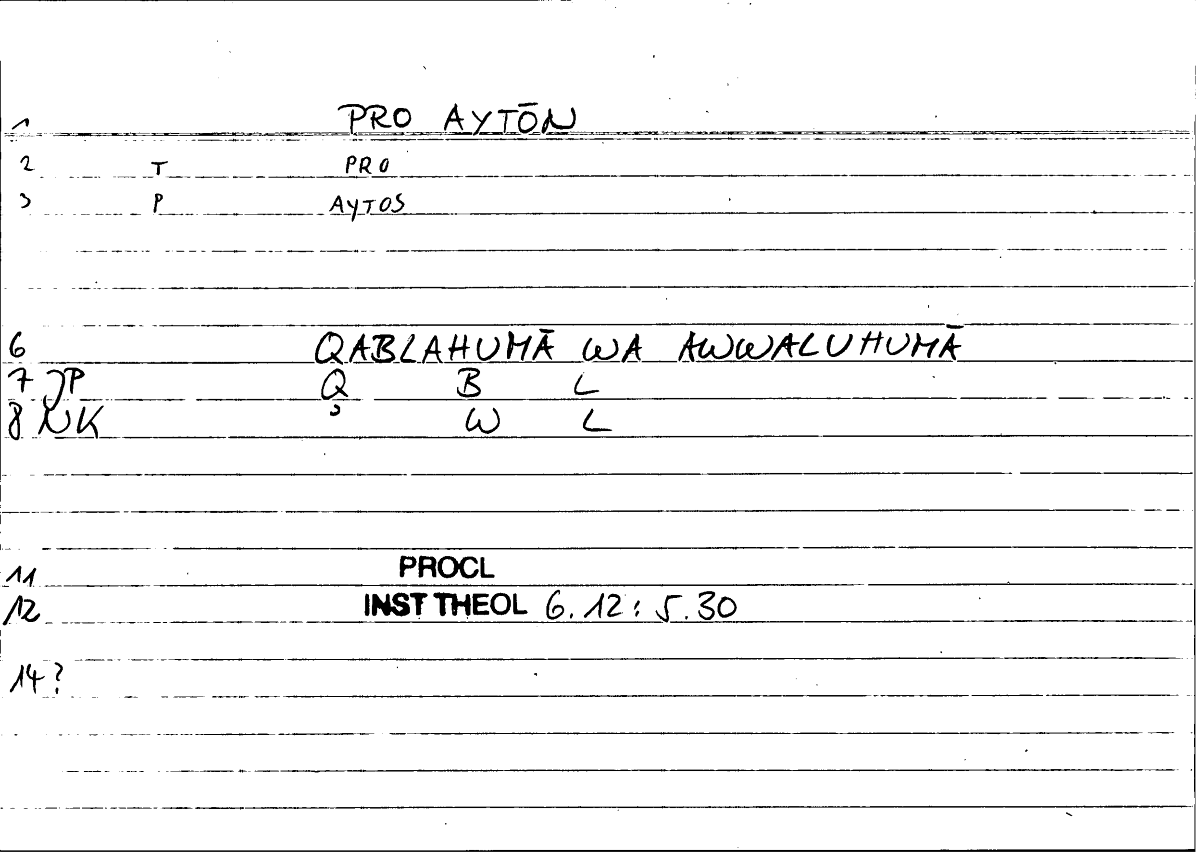 1 PRO AYTŌN
2 T PRO
3 P AYTOS
6 QABLAHUMĀ WA AWWALUHUMĀ
7 JP Q B L
8 NK ʾ W L
11 PROCL
12 INST THEOL 6.12: 5.30
14?